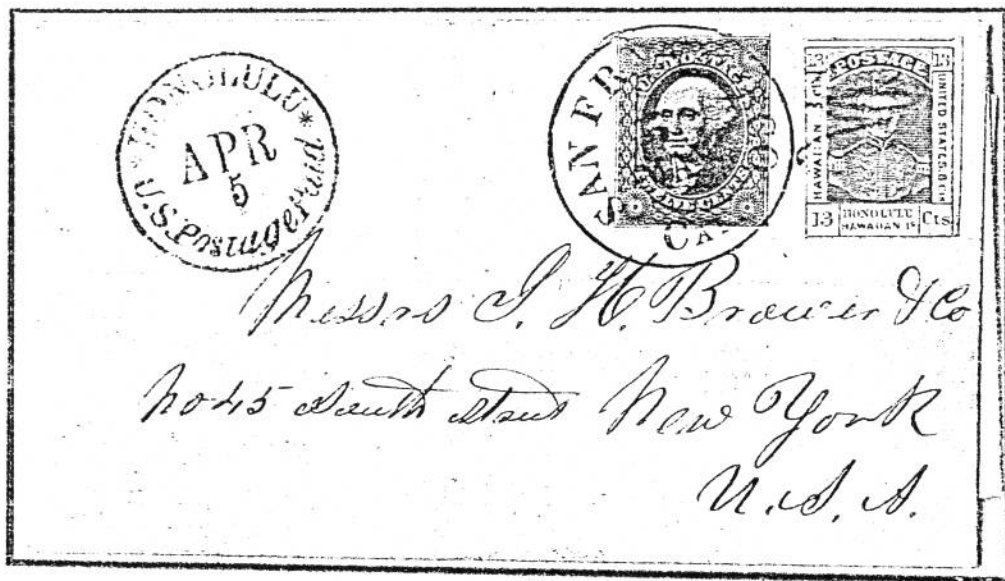 HONOLULU
APR
5
U.S. Postage Paid
SAN FR CO
CAL
U.S. POSTAGE
TWELVE CENTS
13 POSTAGE 13
HAWAIIAN 5 cts
UNITED STATES 8 cts
13 HONOLULU Cts
HAWAIIAN Is
Messrs I. H. Brower & Co
No 45 South Street New York
U.S.A.